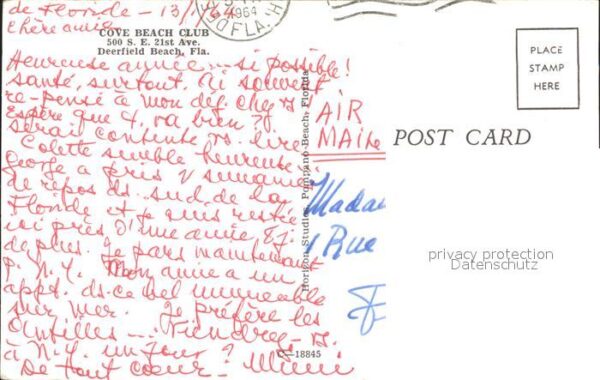 de Floride - 13/1/64
Chère amie
COVE BEACH CLUB
500 S. E. 21st Ave.
Deerfield Beach, Fla.
1964
FLA.
Heureuse année - si possible!
santé, surtout. Ai souvent
re-pensé à mon déf. chez vs
Espère que t. va bien?
Serai contente vs. lire
Colette semble heureuse.
George a pris V semaines
de repos ds. sud de la
Floride et je suis restée
ici près d'une amie 8 j.
de plus. Je pars maintenant
p. N.Y. Mon amie a un
appt. ds. ce bel immeuble
sur mer. Je préfère les
Antilles - Viendrez-vs
à N.Y. un jour?
De tout coeur - Mimi
Horizon Studios, Pompano-Beach, Florida
C-18845
AIR
MAIL
POST CARD
PLACE
STAMP
HERE
Madam
1 Rue
privacy protection
Datenschutz